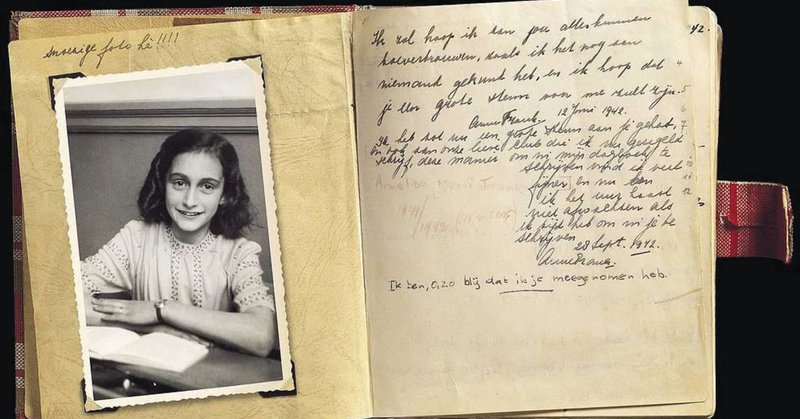 Snoezige foto hè!!!!
42.
Ik zal hoop ik aan jou alles kunnen
toevertrouwen, zoals ik het nog aan
niemand gekund heb, en ik hoop dat 4
je een grote steun voor me zult zijn. 5
Anne Frank. 12 Juni 1942. 6
Ik heb tot nu een grote steun aan je gehad, 7
en ook aan onze lieve club die ik nu geregeld
schrijf, deze manier om in mijn dagboek te
schrijven vind ik veel 10
fijner en nu kan 11
ik het uur haast 12
niet afwachten als
ik tijd heb om in je te
schrijven.
28 Sept. 1942.
Anne Frank.
Ik ben, O, zo blij dat ik je meegenomen heb.